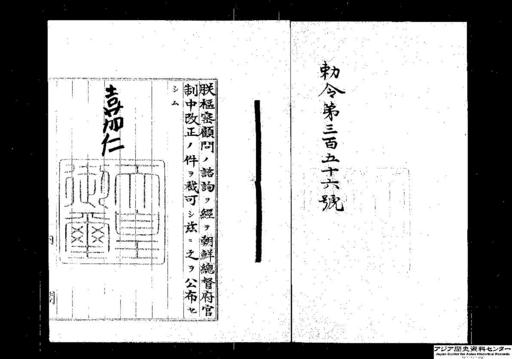 勅令第三百五十六號
朕樞密顧問ノ諮詢ヲ經テ朝鮮總督府官
制中改正ノ件ヲ裁可シ玆ニ之ヲ公布セ
シム
嘉仁
天皇
御璽
内閣
アジア歴史資料センター
Japan Center for Asian Historical Records